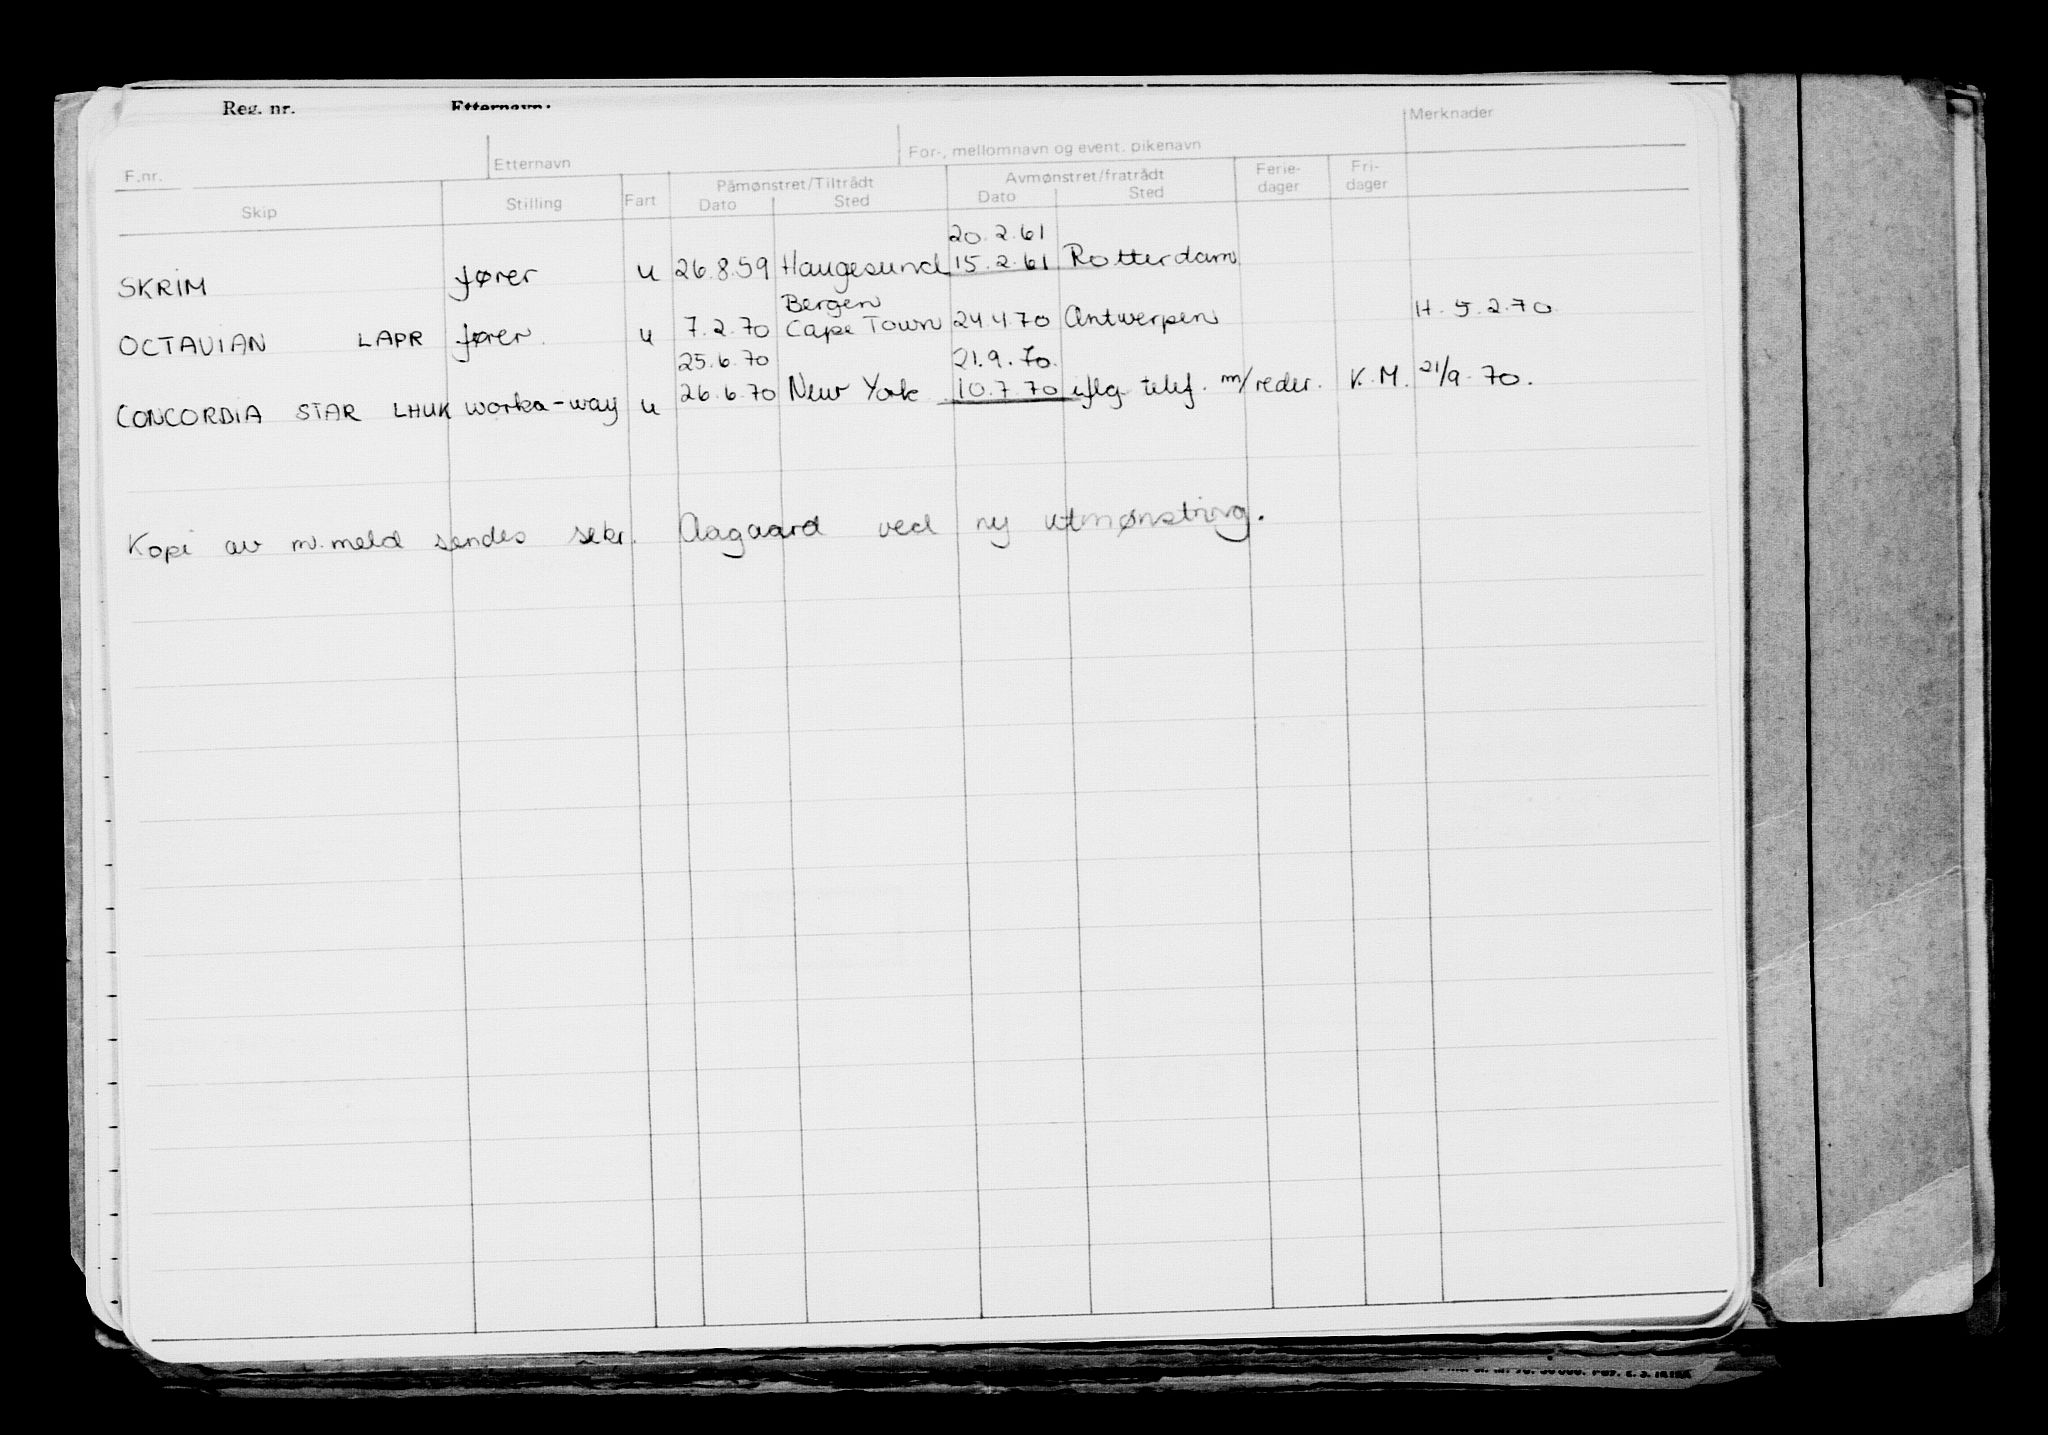 Reg. nr. Etternavn:
Merknader
F.nr. Etternavn For-, mellomnavn og event. pikenavn
Påmønstret/Tiltrådt Avmønstret/fratrådt Ferie- Fri-
Skip Stilling Fart Dato Sted Dato Sted dager dager
20.2.61
SKRIM fører u 26.8.59 Haugesund 15.2.61 Rotterdam
Bergen
OCTAVIAN LAPR fører u 7.2.70 Cape Town 24.4.70 Antwerpen H. 5.2.70
25.6.70 21.9.70
CONCORDIA STAR LHUK worka-way u 26.6.70 New York 10.7.70 iflg. telef. m/reder. K.M. 21/9-70.
Kopi av m.meld sendes sekr. Aagaard ved ny utmønstring.